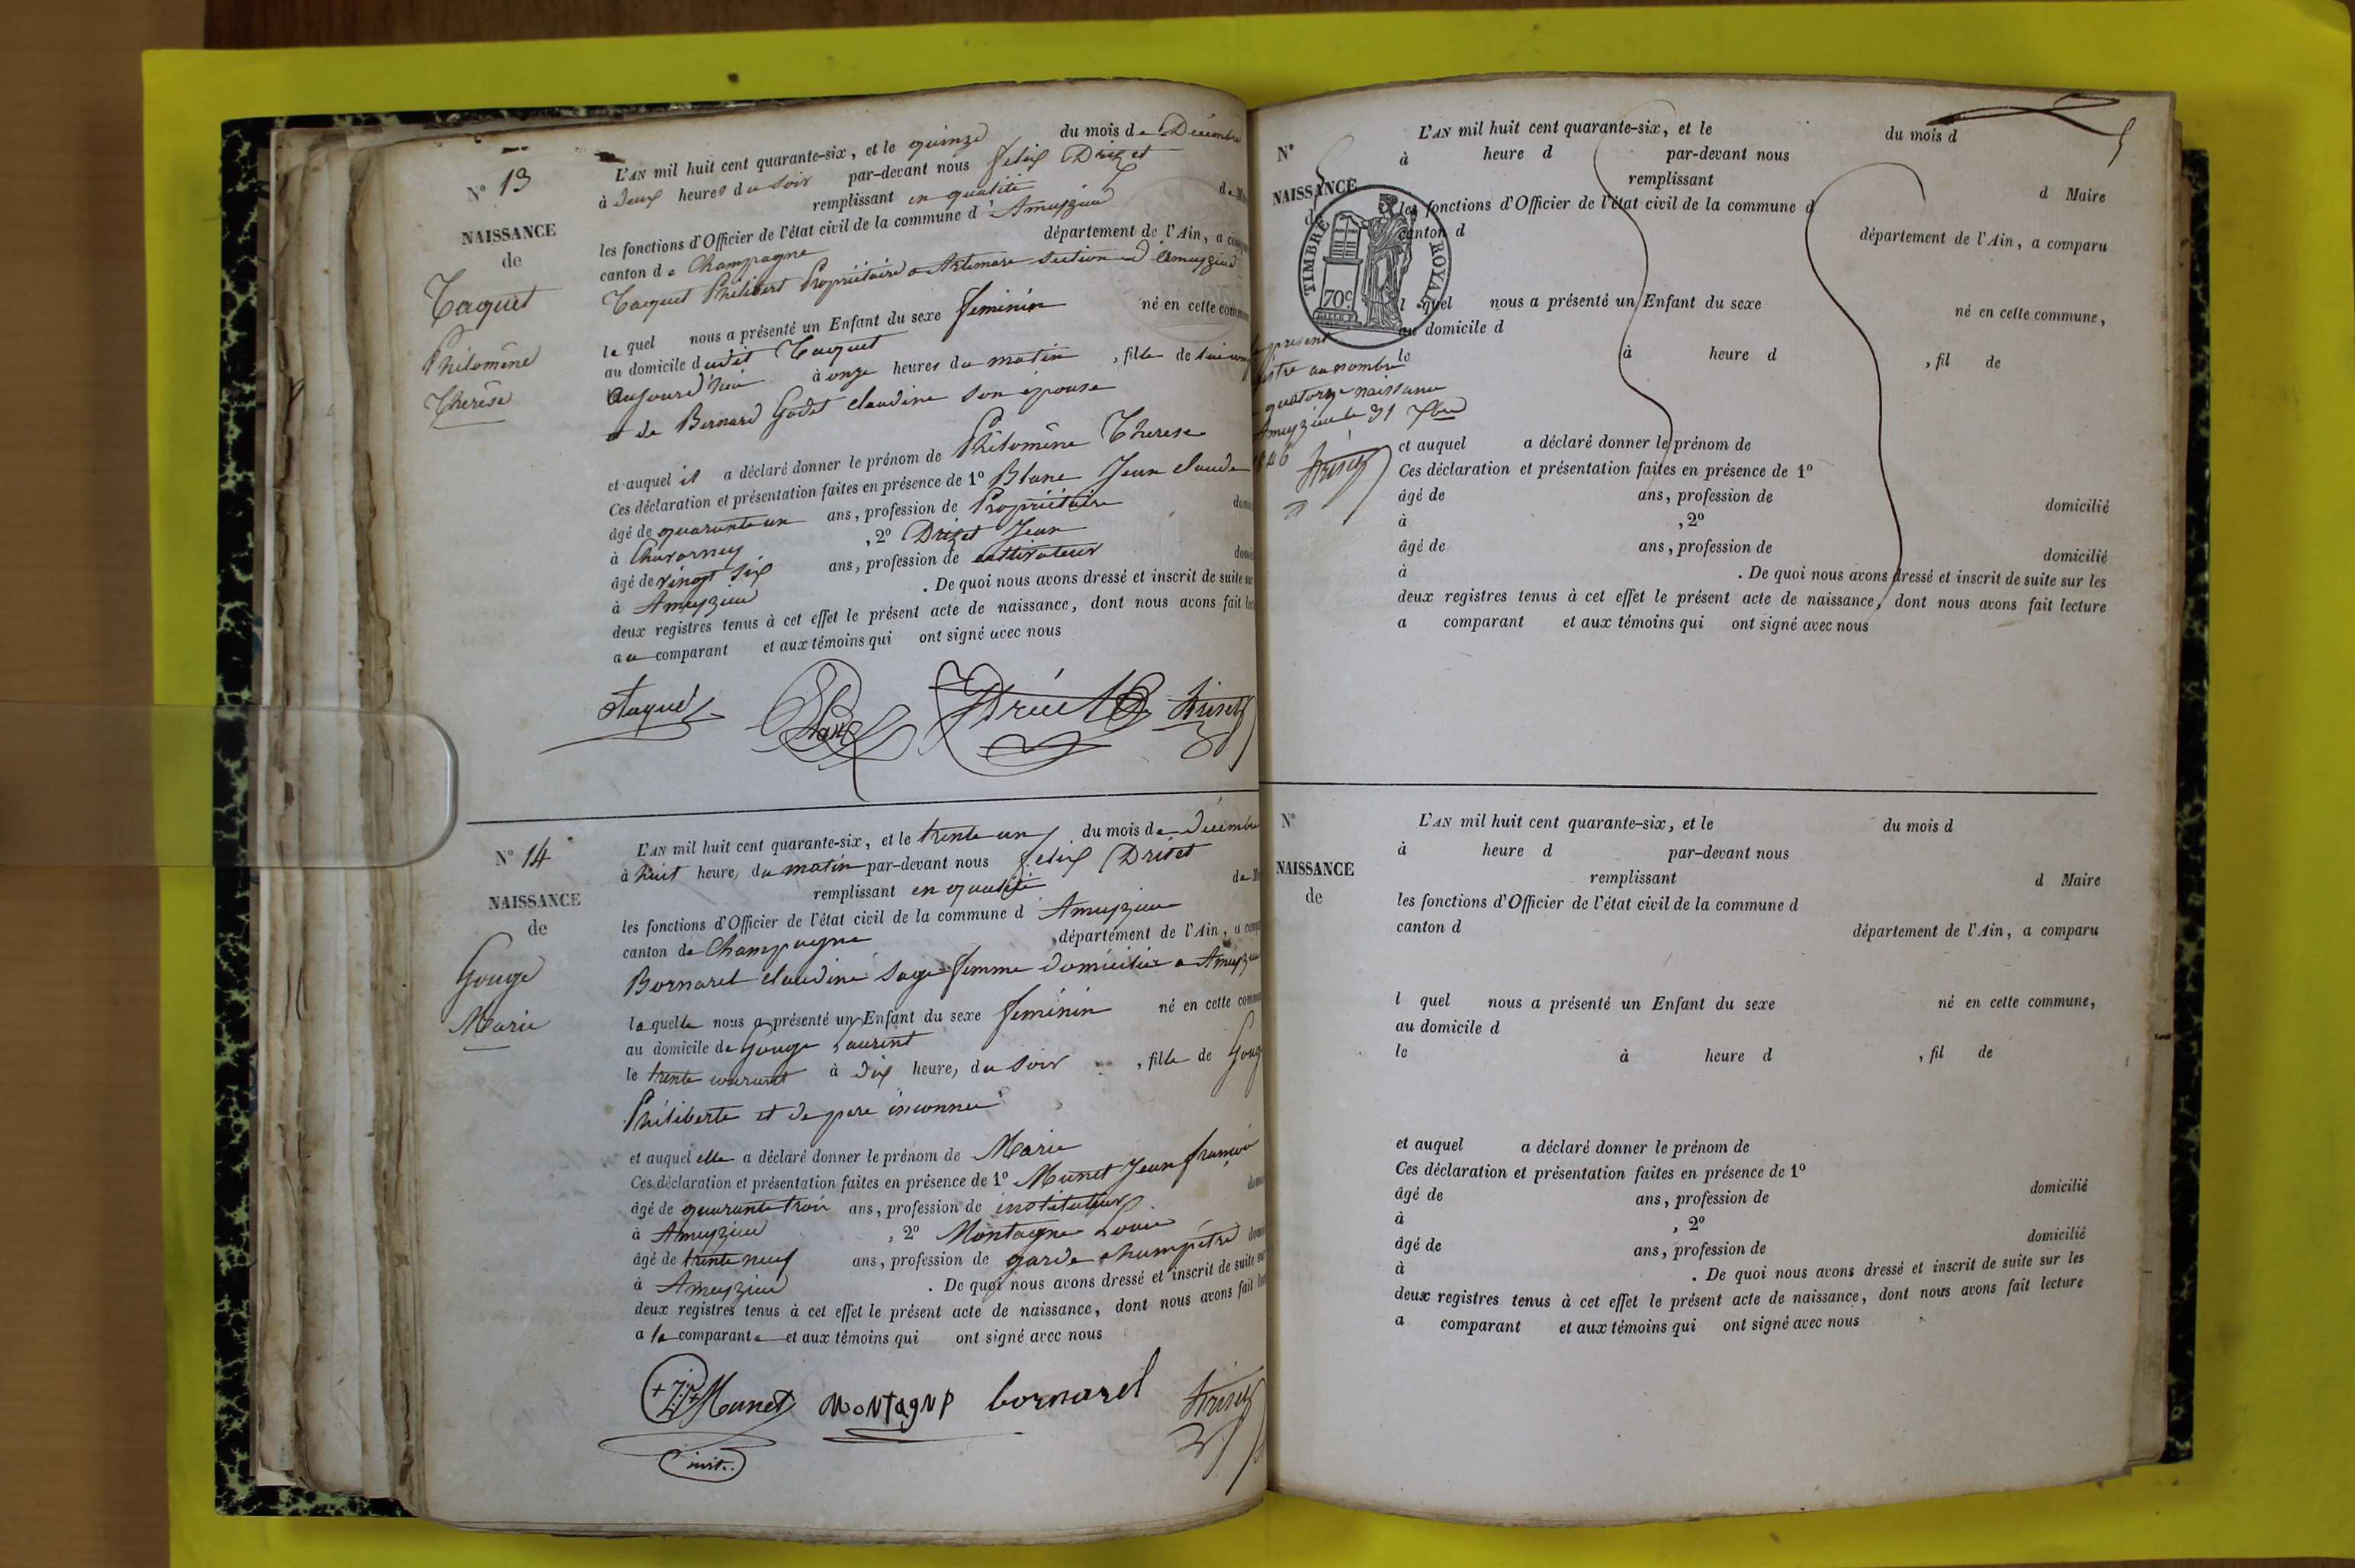 N° 13
NAISSANCE
de
Taquet
Philomène
Therèse
L'AN mil huit cent quarante-six, et le quinze du mois de Décembre
à deux heures du soir par-devant nous felix Drizet
remplissant en qualité de M
les fonctions d'Officier de l'état civil de la commune d'Ameyzieu
canton de Champagne département de l'Ain, a comp
Tacquet Philibert Propriétaire a Artemare section d'ameyzieu
le quel nous a présenté un Enfant du sexe feminin né en cette commun
au domicile dudit Tacquet
aujourd'hui à onze heures du matin, fille de lui
et de Bernard Godet claudine son épouse
et auquel il a déclaré donner le prénom de Philomène Therese
Ces déclaration et présentation faites en présence de 1° Blanc Jean claude
âgé de quarante un ans, profession de Propriétaire domi
à Chavornay, 2° Drizet Jean
âgé de vingt six ans, profession de cultivateur domi
à Ameyzieu. De quoi nous avons dressé et inscrit de suite sur
deux registres tenus à cet effet le présent acte de naissance, dont nous avons fait lec
au comparant et aux témoins qui ont signé avec nous
Taquet Drizet
N° 14
NAISSANCE
de
Gouge
Marie
L'AN mil huit cent quarante-six, et le trente un du mois de décembre
à huit heures du matin par-devant nous felix Drizet
remplissant en qualité de M
les fonctions d'Officier de l'état civil de la commune d'Ameyzieu
canton de Champagne département de l'Ain, a comp
Bornarel claudine sage femme domiciliée a Ameyzieu
laquelle nous a présenté un Enfant du sexe féminin né en cette commun
au domicile de Gouge Laurent
le trente courant à dix heures du soir, fille de Goug
Philiberte et de pere inconnu
et auquel elle a déclaré donner le prénom de Marie
Ces déclaration et présentation faites en présence de 1° Munet Jean françois
âgé de quarante trois ans, profession de instituteur domi
à Ameyzieu, 2° Montagne Louis
âgé de trente neuf ans, profession de garde champêtre domi
à Ameyzieu. De quoi nous avons dressé et inscrit de suite sur
deux registres tenus à cet effet le présent acte de naissance, dont nous avons fait lec
a la comparante et aux témoins qui ont signé avec nous
Munet MoNtagNe bornarel
inst.
N°
NAISSANCE
d
TIMBRE ROYAL
70c
L'AN mil huit cent quarante-six, et le du mois d
à heure d par-devant nous
remplissant d Maire
les fonctions d'Officier de l'état civil de la commune d
canton d département de l'Ain, a comparu
l quel nous a présenté un Enfant du sexe né en cette commune,
au domicile d
le à heure d, fil de
present
istre au nombre
quatorze naissance
Ameyzieu le 31 Xbre
et auquel a déclaré donner le prénom de
Ces déclaration et présentation faites en présence de 1°
âgé de ans, profession de domicilié
à, 2°
âgé de ans, profession de domicilié
à. De quoi nous avons dressé et inscrit de suite sur les
deux registres tenus à cet effet le présent acte de naissance, dont nous avons fait lecture
a comparant et aux témoins qui ont signé avec nous
N°
NAISSANCE
de
L'AN mil huit cent quarante-six, et le du mois d
à heure d par-devant nous
remplissant d Maire
les fonctions d'Officier de l'état civil de la commune d
canton d département de l'Ain, a comparu
l quel nous a présenté un Enfant du sexe né en cette commune,
au domicile d
le à heure d, fil de
et auquel a déclaré donner le prénom de
Ces déclaration et présentation faites en présence de 1°
âgé de ans, profession de domicilié
à, 2°
âgé de ans, profession de domicilié
à. De quoi nous avons dressé et inscrit de suite sur les
deux registres tenus à cet effet le présent acte de naissance, dont nous avons fait lecture
a comparant et aux témoins qui ont signé avec nous